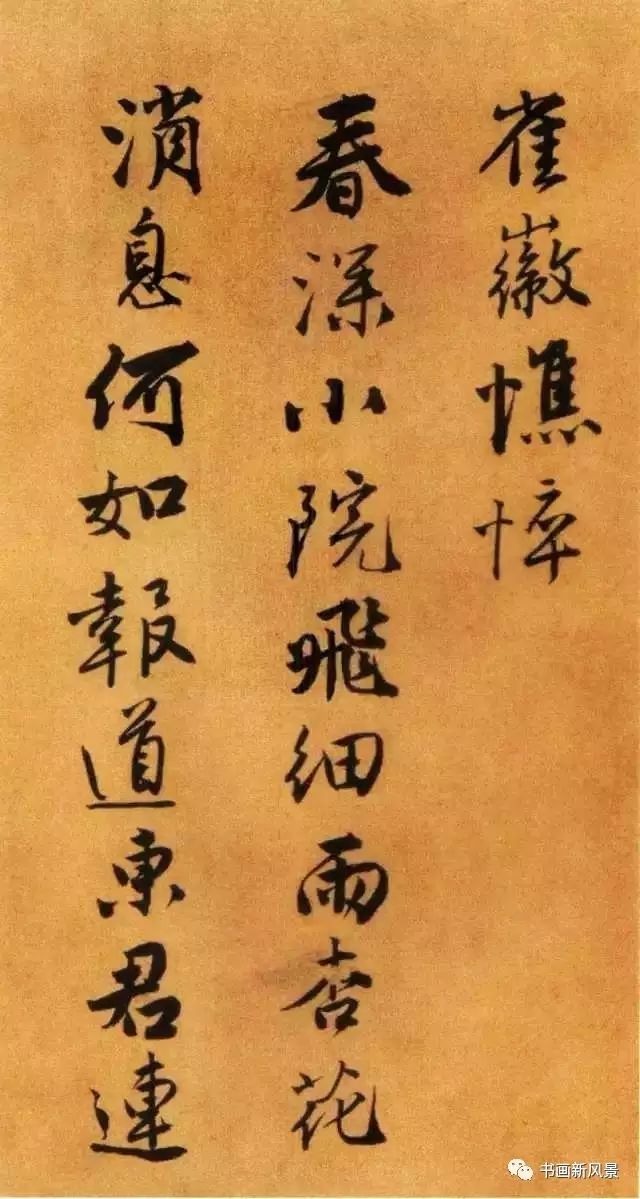 崔徽憔悴
春深小院飛細雨杏花
消息何如報道東君連
书画新风景